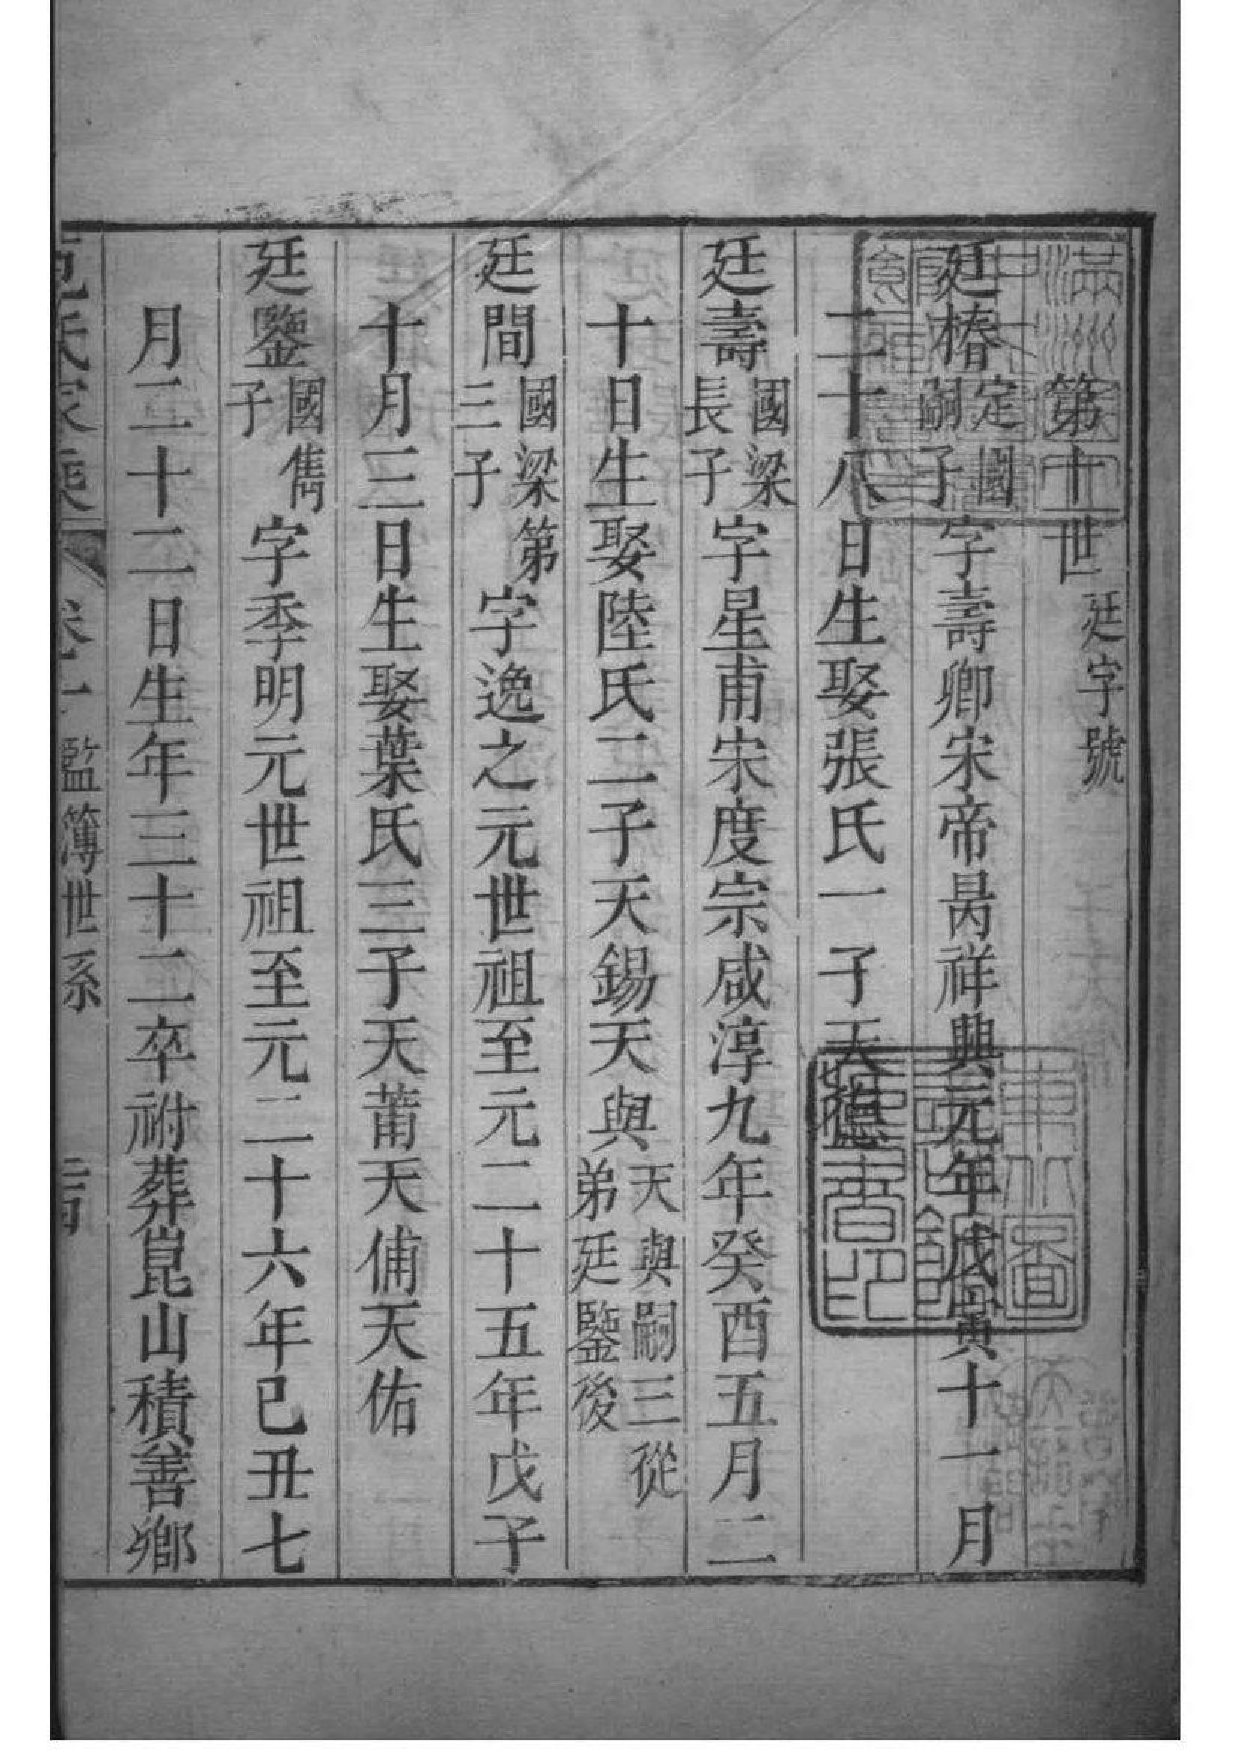 第十世廷字號
廷椿定國嗣子字壽卿宋帝昺祥興元年戊寅十一月
二十八日生娶張氏一子天德
廷壽國梁長子字星甫宋度宗咸淳九年癸酉五月二
十日生娶陸氏二子天錫天與天與嗣三從弟廷鑒後
廷間國梁第三子字逸之元世祖至元二十五年戊子
十月三日生娶葉氏三子天莆天俌天佑
廷鑒國雋子字季明元世祖至元二十六年己丑七
月二十二日生年三十二卒祔葬崑山積善鄉
氏家乘 卷十 監簿世系